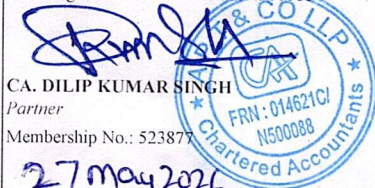 CA. DILIP KUMAR SINGH
Partner
Membership No.: 523877
& CO LLP
CA
FRN : 014621C/
N500088
Chartered Accountants
27 May